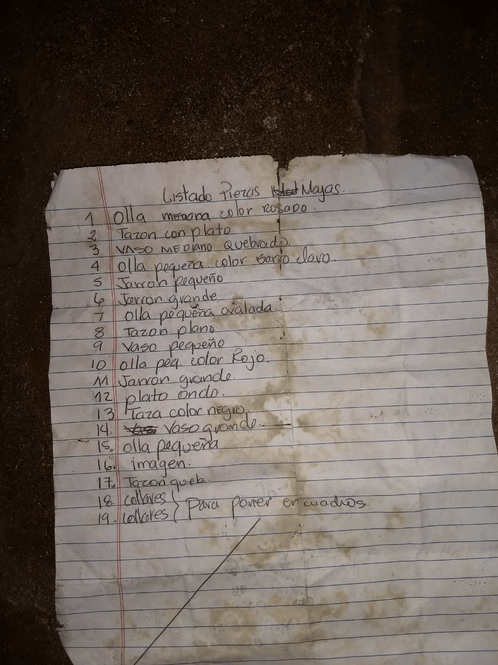 Listado Piezas Mayas.
1 Olla mediana color Rosado.
2 Tazon con plato
3 VASO MEDIANO Quebrado.
4 olla pequeña color Barro claro.
5 Jarron pequeño
6 Jarron grande
7 olla pequeña ovalada.
8 Tazon plano
9 Vaso pequeño
10 olla peq. color Rojo.
11 Jarron grande.
12 plato ondo.
13 Taza color negro.
14. Vaso grande.
15. olla pequeña
16. imagen.
17. Tazon queb.
18. collares } Para poner en cuadros
19. collares